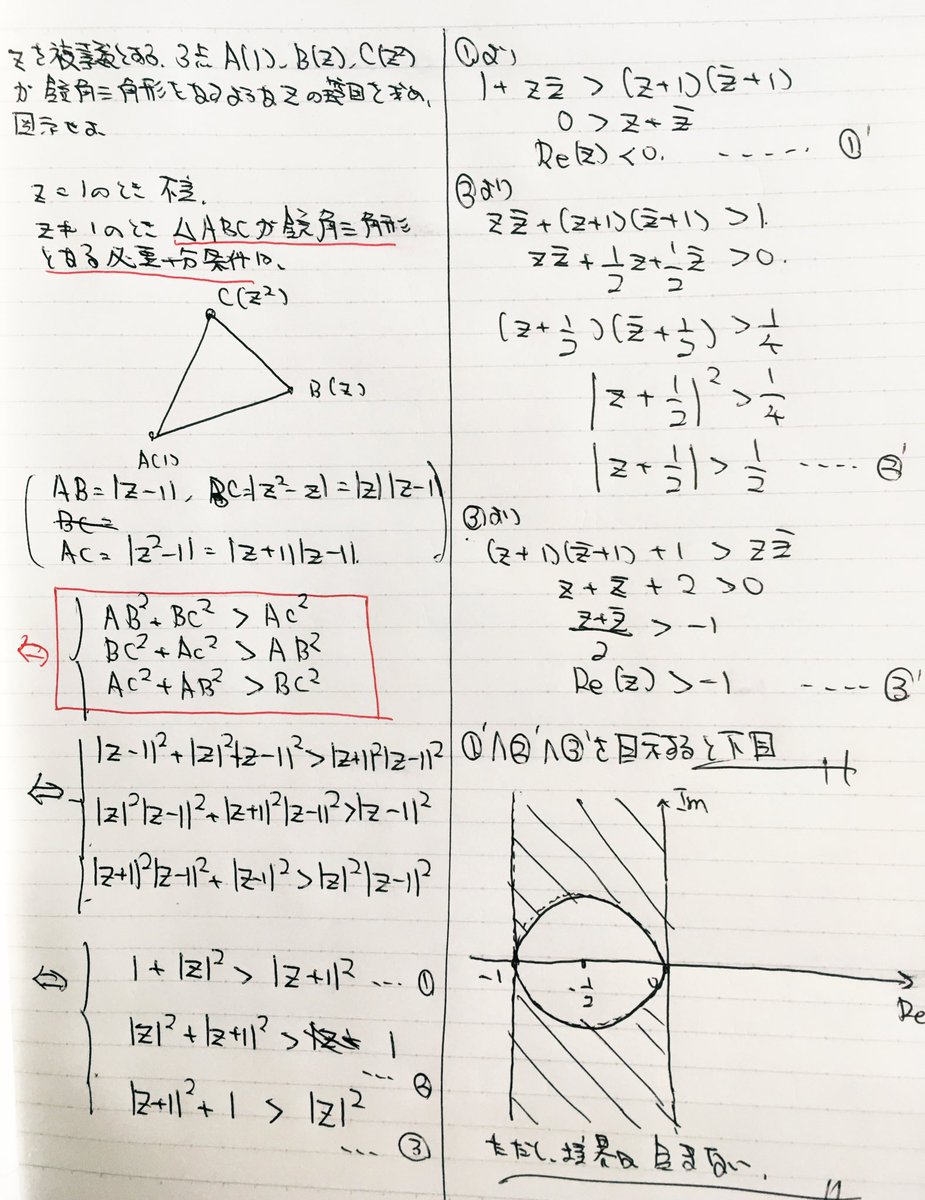 zを複素数とする. 3点 A(1), B(z), C(z²)
が鋭角三角形をなるようなzの範囲を求め,
図示せよ
z=1のとき 不適.
z≠1のとき △ABCが鋭角三角形
となる必要十分条件は、
C(z²)
B(z)
A(1)
AB=|z-1|, BC=|z²-z|=|z||z-1|
BC=
AC=|z²-1|=|z+1||z-1|.
⇔ AB²+BC² > AC²
BC²+AC² > AB²
AC²+AB² > BC²
⇔ |z-1|²+|z|²|z-1|²>|z+1|²|z-1|²
|z|²|z-1|²+|z+1|²|z-1|²>|z-1|²
|z+1|²|z-1|²+|z-1|²>|z|²|z-1|²
⇔ 1+|z|² > |z+1|² ... ①
|z|²+|z+1|² > 1
... ②
|z+1|²+1 > |z|²
... ③
①より
1+zz̄ > (z+1)(z̄+1)
0 > z+z̄
Re(z)<0. ----- ①'
②より
zz̄+(z+1)(z̄+1) > 1.
zz̄+1/2z+1/2z̄ > 0.
(z+1/2)(z̄+1/2) > 1/4
|z+1/2|² > 1/4
|z+1/2| > 1/2 ---- ②'
③より
(z+1)(z̄+1)+1 > zz̄
z+z̄+2 > 0
(z+z̄)/2 > -1
Re(z) > -1 ---- ③'
①'∧②'∧③'を図示すると下図
Im
-1
-1/2
0
Re
ただし、境界は含まない.